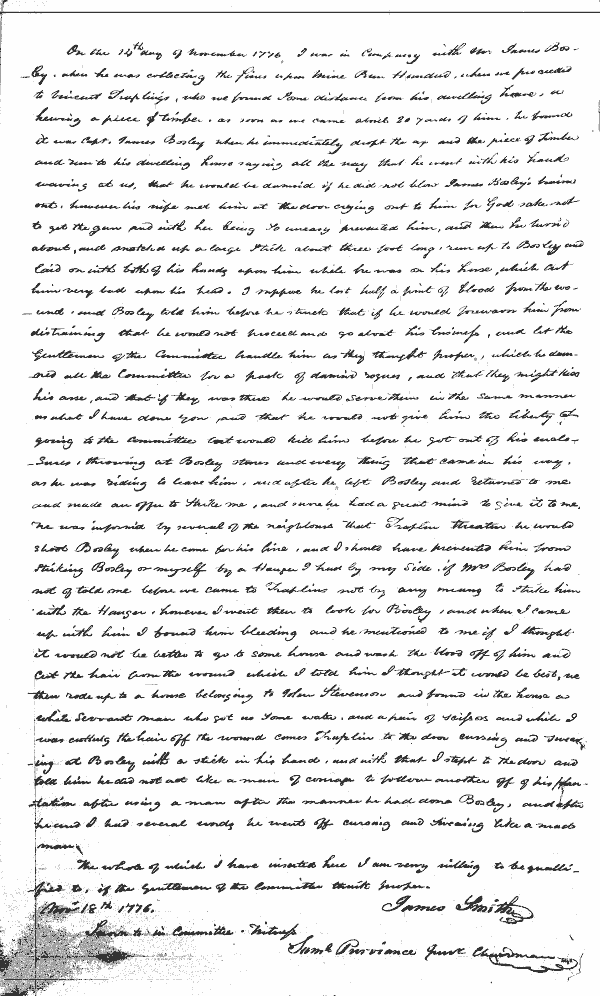 On the 14th day of November 1776, I was in Company with Mr James Bos-
-ley, when he was collecting the fines upon Mine Run Hundred, when we proceeded
to Vincent Traplings, who we found Some distance from his dwelling house, a
hewing a piece of timber, as soon as we came about 20 yards of him, he found
it was Capt. James Bosley when he immediately dropt the ax and the piece of Timber
and run to his dwelling house saying all the way that he went with his hand
waving at us, that he would be damnd if he did not blow James Bosley's brains
out, however his wife met him at the door crying out to him for God sake not
to get the gun and with her being so uneasy prevented him, and then he turnd
about, and snatched up a large Stick about three foot long, run up to Bosley and
laid on with both of his hands upon him while he was on his horse, which cut
him very bad upon his head. I suppose he lost half a pint of blood from the wo-
-und, and Bosley told him before he struck that if he would forewarn him from
distraining that he would not proceed and go about his business, and let the
Gentlemen of the Committee handle him as they thought proper, which he dam-
-ned all the Committee for a pack of damnd rogues, and that they might kiss
his arse, and that if they was there he would serve them in the same manner
as what I have done you and that he would not give him the liberty of
going to the Committee but would kill him before he got out of his enclo-
-sures, throwing at Bosley stones and every thing that came in his way,
as he was riding to leave him, and after he left Bosley and returned to me
and made an offer to strike me, and swore he had a great mind to give it to me,
we was informd by several of the neighbours that Traplin threaten he would
shoot Bosley when he come for his fine, and I should have prevented him from
striking Bosley or myself by a Hanger I had by my Side, if Mrs Bosley had
not of told me before we came to Traplins not by any means to strike him
with the Hanger, however I went then to look for Bosley, and when I came
up with him I found him bleeding and he mentioned to me if I thought
it would not be better to go to some house and wash the blood off of him and
cut the hair from the wound which I told him I thought it would be best, we
then rode up to a house belonging to John Stevenson and found in the house a
white Servant man who got us some water, and a pair of scissors and while I
was cutting the hair off the wound comes Traplin to the door cursing and swear-
-ing at Bosley with a stick in his hand, and with that I stept to the door and
told him he did not act like a man of courage to follow another off of his plan-
-tation after using a man after the manner he had done Bosley, and after
he and I had several words he went off cursing and swearing like a mad
man.
The whole of which I have inserted here I am very willing to be qualli-
-fied to, if the Gentlemen of the Committee think proper.
Novr 18th 1776.
James Smith
Sworn to in Committee. Witness
Saml Purviance Junr Chairman